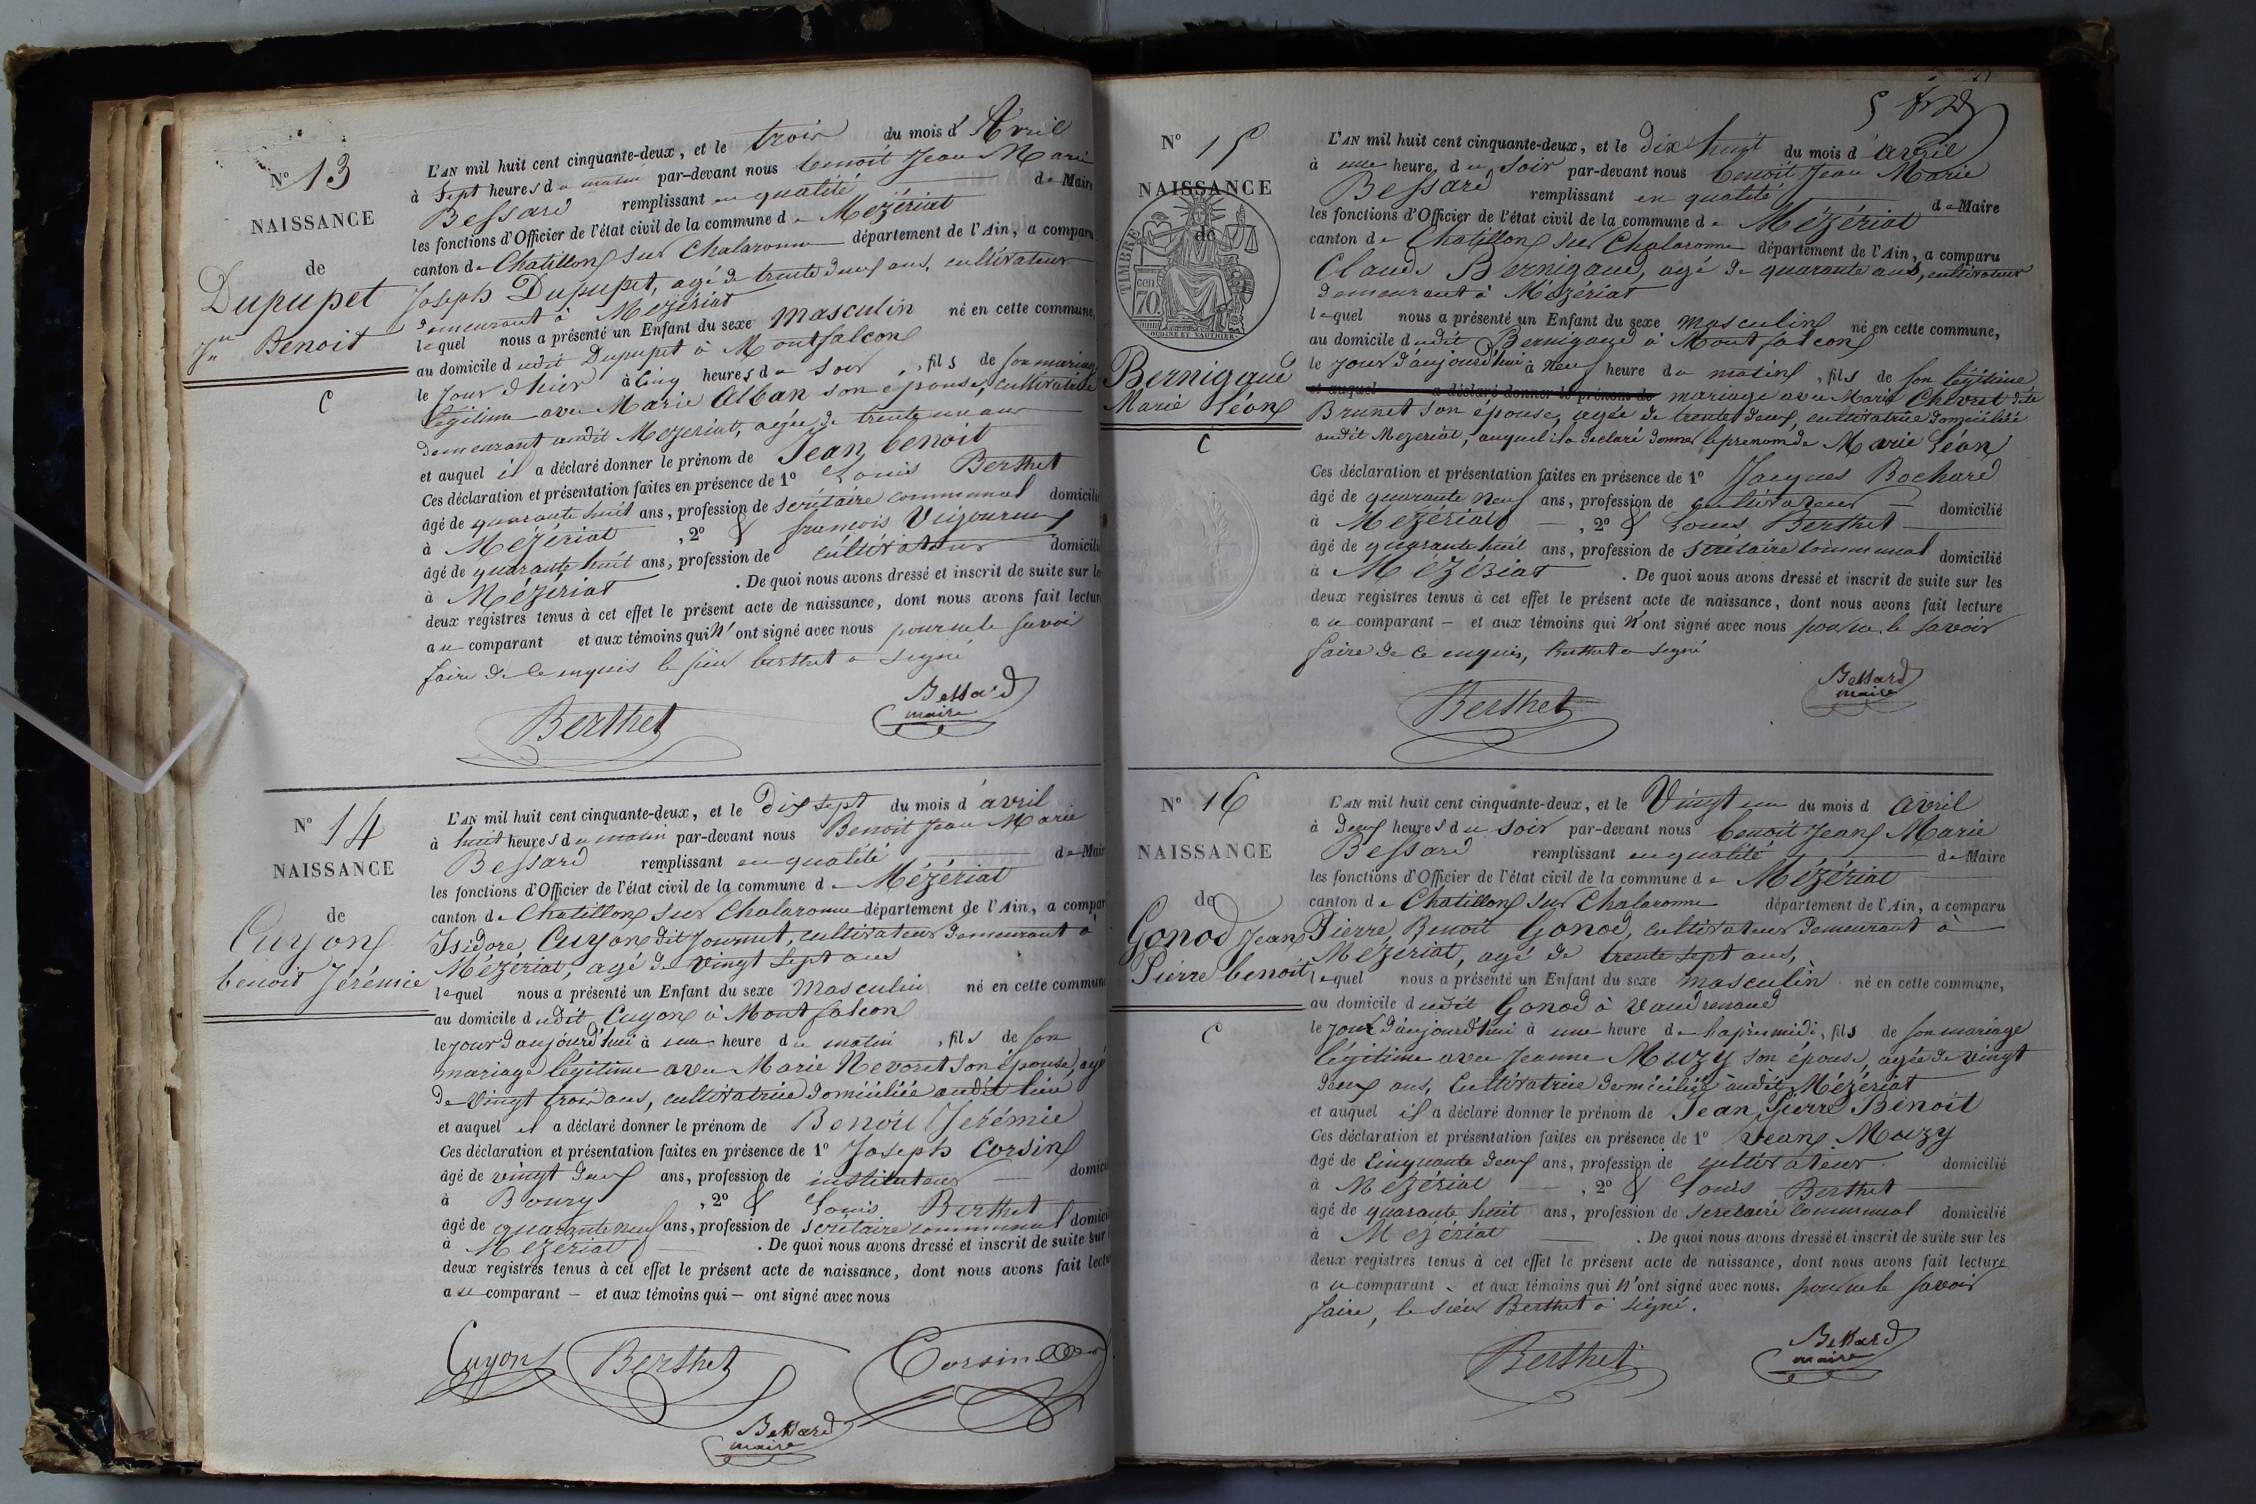 N° 13
NAISSANCE
de
Dupupet
Jn Benoit
C
L'AN mil huit cent cinquante-deux, et le trois du mois d'Avril
à sept heures du matin par-devant nous benoit Jean Marie
Bessard remplissant en qualité de Maire
les fonctions d'Officier de l'état civil de la commune de Mézériat
canton de Chatillon sur Chalaronne département de l'Ain, a comparu
Joseph Dupupet, agé de trente deux ans, cultivateur
demeurant à Mézériat
lequel nous a présenté un Enfant du sexe masculin né en cette commune,
au domicile dudit Dupupet à Montfalcon
le jour d'hier à cinq heures du soir, fils de son mariage
légitime avec Marie Alban son épouse, cultivatrice
demeurant audit Mezeriat, agée de trente un ans
et auquel il a déclaré donner le prénom de Jean benoit
Ces déclaration et présentation faites en présence de 1° Louis Berthet
âgé de quarante huit ans, profession de secrétaire communal domicilié
à Mézériat, 2° & françois
âgé de quarante huit ans, profession de cultivateur domicilié
à Mézériat. De quoi nous avons dressé et inscrit de suite sur les
deux registres tenus à cet effet le présent acte de naissance, dont nous avons fait lecture
au comparant et aux témoins qui n'ont signé avec nous pour ne le savoir
faire de ce enquis le sieur berthet a signé
Berthet
Bessard
maire
N° 14
NAISSANCE
de
Cuyon
benoit Jérémie
L'AN mil huit cent cinquante-deux, et le dix sept du mois d'avril
à huit heures du matin par-devant nous Benoit Jean Marie
Bessard remplissant en qualité de Maire
les fonctions d'Officier de l'état civil de la commune de Mézériat
canton de Chatillon sur Chalaronne département de l'Ain, a comparu
Isidore Cuyon dit Journet, cultivateur demeurant à
Mézériat, agé de vingt sept ans
lequel nous a présenté un Enfant du sexe masculin né en cette commune
au domicile dudit Cuyon à Montfalcon
le jour d'aujourd'hui à une heure du matin, fils de son
mariage légitime avec Marie Nevoret son épouse, agée
de vingt trois ans, cultivatrice domiciliée audit lieu
et auquel il a déclaré donner le prénom de Benoit Jerémie
Ces déclaration et présentation faites en présence de 1° Joseph Corsin
âgé de vingt deux ans, profession de instituteur domicilié
à Bourg, 2° & Louis Berthet
âgé de quarante neuf ans, profession de secretaire communal domicilié
à Mézériat. De quoi nous avons dressé et inscrit de suite sur
deux registres tenus à cet effet le présent acte de naissance, dont nous avons fait lecture
au comparant – et aux témoins qui – ont signé avec nous
Cuyon Berthet Corsin
Bessard
maire
N° 15
NAISSANCE
de
TIMBRE
70 cen.
Bernigaud
Marie Léon
C
L'AN mil huit cent cinquante-deux, et le dix huit du mois d'avril
à une heure, du soir par-devant nous benoit Jean Marie
Bessard remplissant en qualité de Maire
les fonctions d'Officier de l'état civil de la commune de Mézériat
canton de Chatillon sur Chalaronne département de l'Ain, a comparu
Claude Bernigaud, agé de quarante ans, cultivateur
demeurant à Mézériat
lequel nous a présenté un Enfant du sexe masculin né en cette commune,
au domicile dudit Bernigaud à Montfalcon
le jour d'aujourd'hui à neuf heure du matin, fils de son légitime
et auquel a déclaré donner le prénom de mariage avec Marie Chevret dite
Brunet son épouse, agée de trente deux, cultivatrice domiciliée
audit Mezeriat, auquel il a declaré donner le prenom de Marie Léon
Ces déclaration et présentation faites en présence de 1° Jacques Bochard
âgé de quarante neuf ans, profession de cultivateur – domicilié
à Mézériat –, 2° & Louis Berthet
âgé de quarante huit ans, profession de secrétaire communal domicilié
à Mézériat. De quoi nous avons dressé et inscrit de suite sur les
deux registres tenus à cet effet le présent acte de naissance, dont nous avons fait lecture
au comparant – et aux témoins qui n'ont signé avec nous pour ne le savoir
faire de ce enquis, Berthet a signé
Berthet
Bessard
maire
N° 16
NAISSANCE
de
Gonod Jean
Pierre benoit
C
L'AN mil huit cent cinquante-deux, et le vingt un du mois d'avril
à deux heures du soir par-devant nous benoit Jean Marie
Bessard remplissant en qualité de Maire
les fonctions d'Officier de l'état civil de la commune de Mézériat
canton de Chatillon sur Chalaronne département de l'Ain, a comparu
Pierre Benoit Gonod, cultivateur demeurant à
Mézériat, agé de trente sept ans,
lequel nous a présenté un Enfant du sexe masculin né en cette commune,
au domicile dudit Gonod à Vaudrenaud
le jour d'aujourd'hui à une heure de l'après midi, fils de son mariage
légitime avec Jeanne Muzy son épouse, agée de vingt
deux ans, cultivatrice domiciliée audit Mézériat
et auquel il a déclaré donner le prénom de Jean Pierre Benoit
Ces déclaration et présentation faites en présence de 1° Jean Muzy
âgé de cinquante deux ans, profession de cultivateur domicilié
à Mézériat –, 2° & Louis Berthet
âgé de quarante huit ans, profession de secretaire communal domicilié
à Mézériat. De quoi nous avons dressé et inscrit de suite sur les
deux registres tenus à cet effet le présent acte de naissance, dont nous avons fait lecture
au comparant – et aux témoins qui n'ont signé avec nous. pour ne le savoir
faire, le sieur Berthet a signé.
Berthet
Bessard
maire